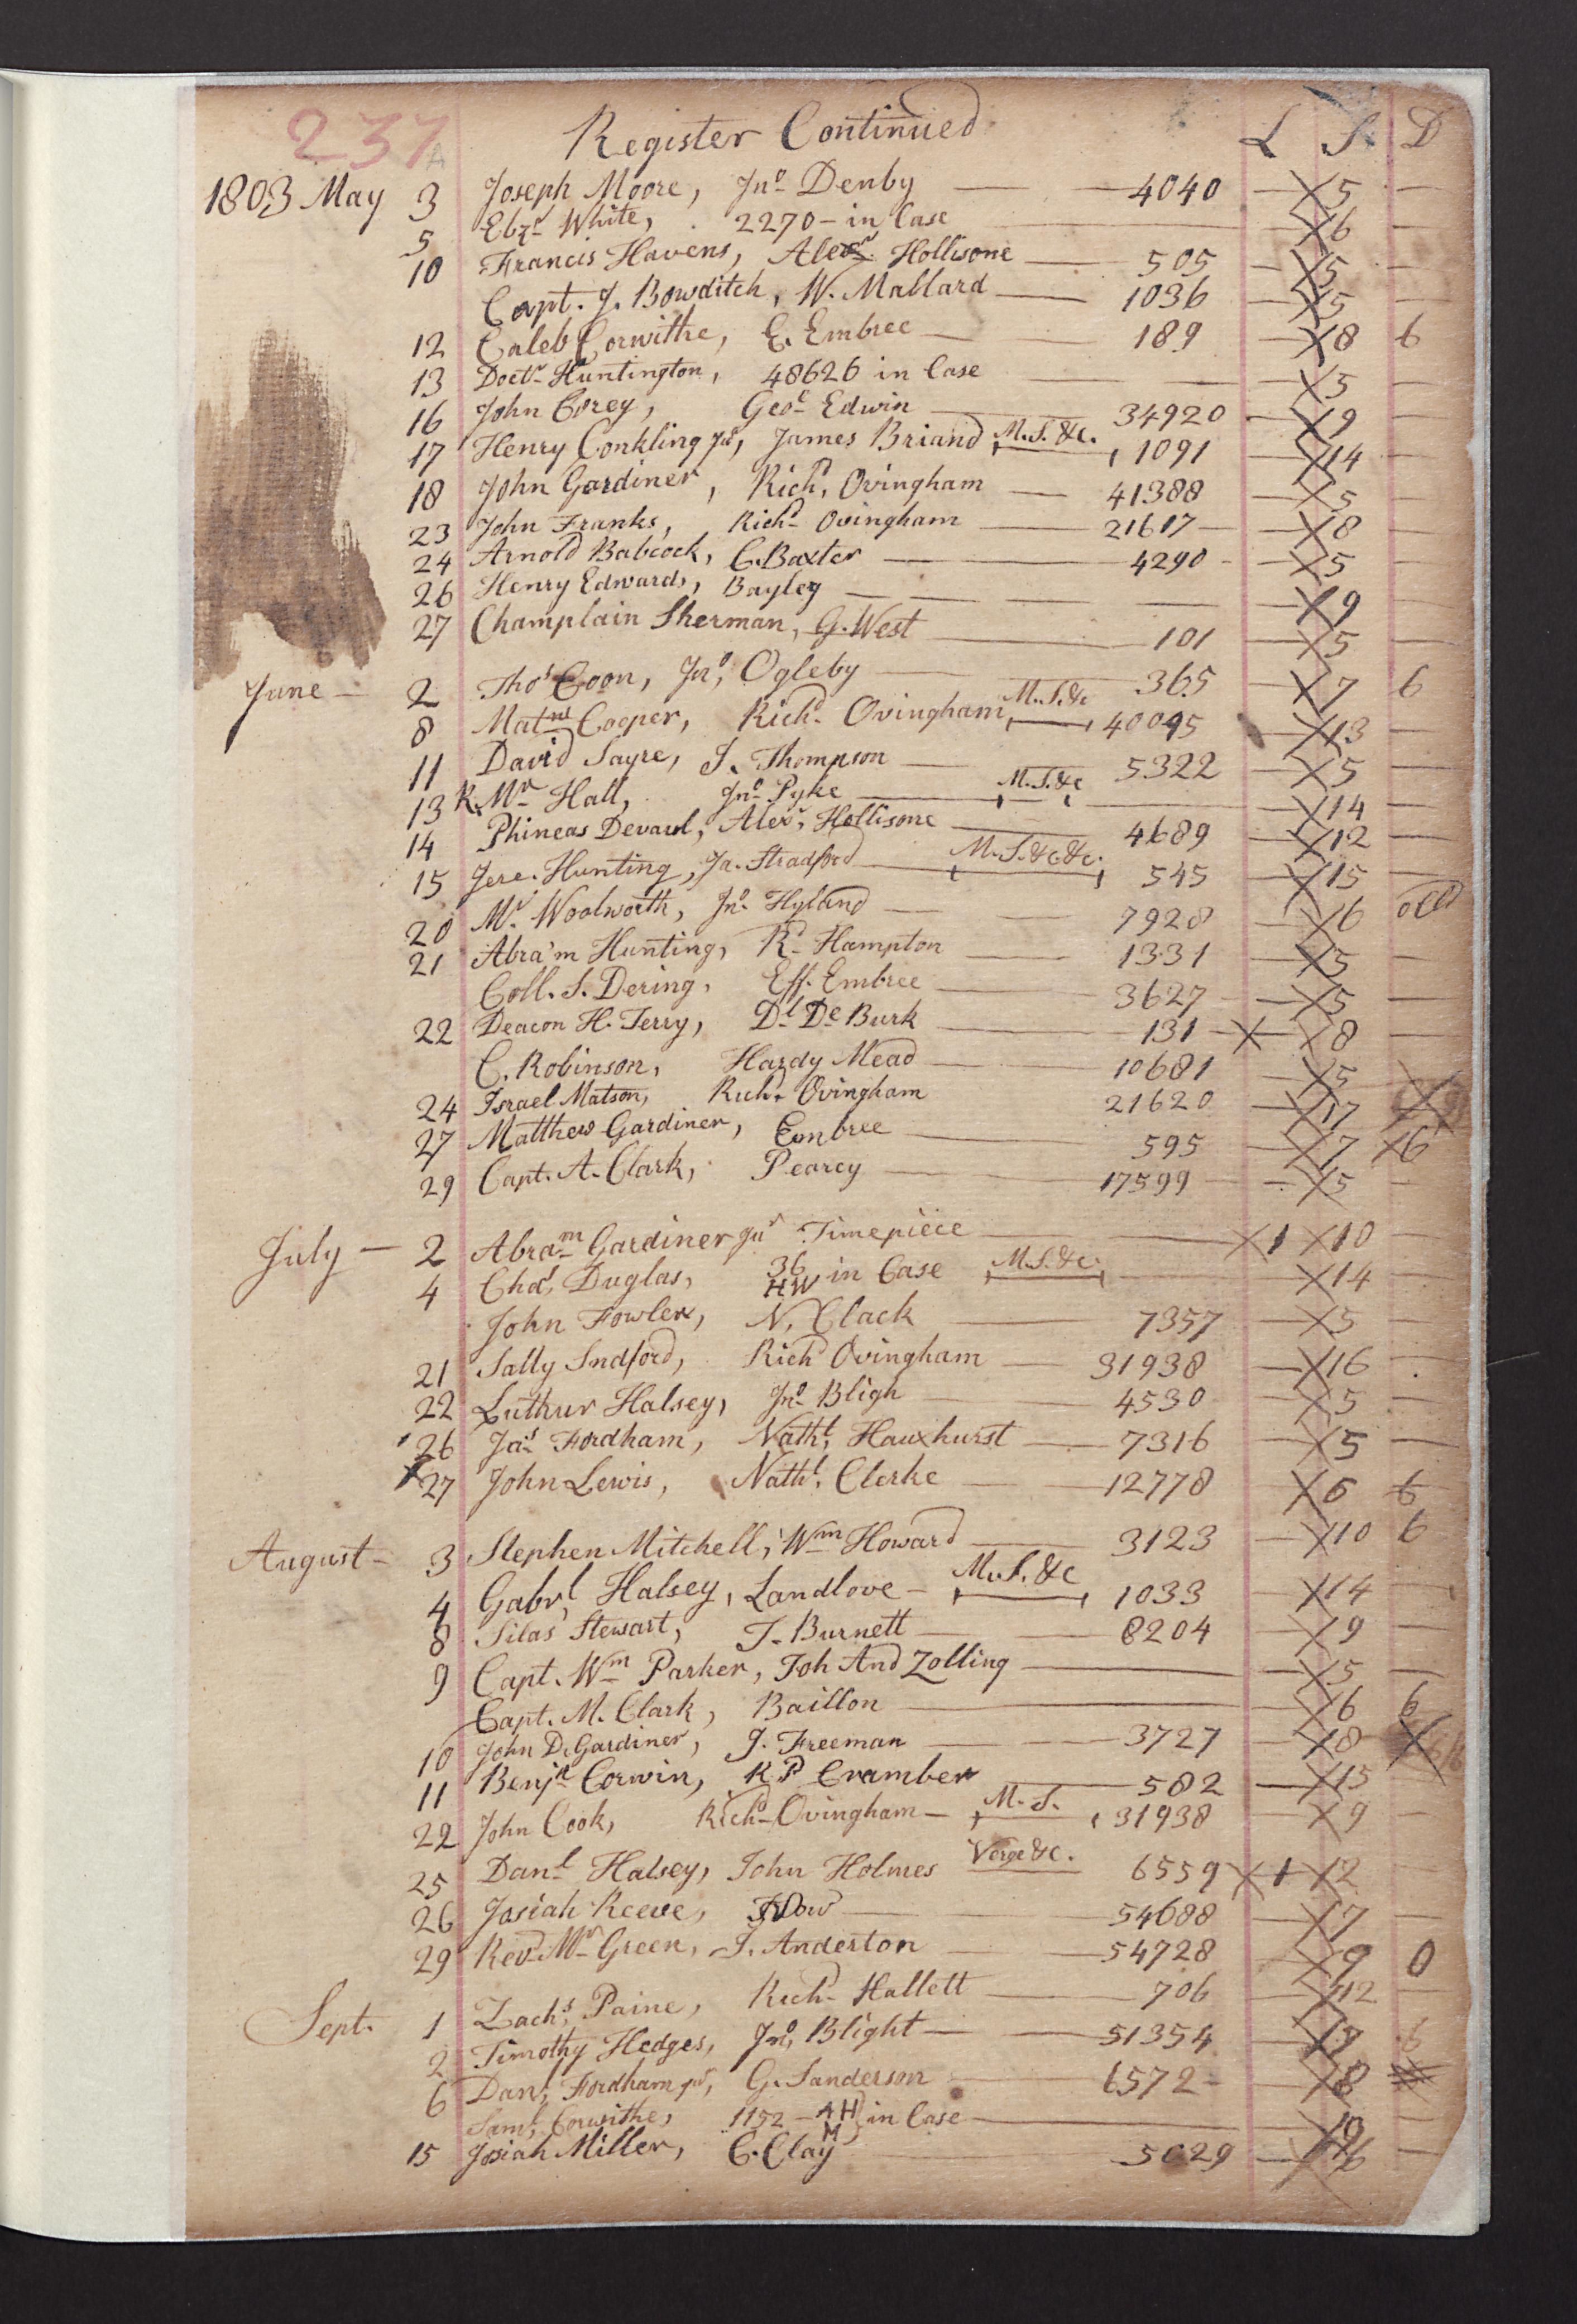 237
Register Continued L S. D
1803 May 3 Joseph Moore, Jno Denby — 4040 — X 5 —
5 Ebzr White, 2270 – in Case — X 6 —
10 Francis Havens, Alexr Hollisone — 505 — X 5 —
Capt. J. Bowditch, W. Mallard — 1036 — X 5 —
12 Caleb Corwithe, E. Embree — 189 — X 8 6
13 Doctr Huntington, 48626 in Case — X 5 —
16 John Corey, Geoe Edwin — 34920 — X 9 —
17 Henry Conkling Jur, James Briand M.S. &c. 1091 — X 14 —
18 John Gardiner, Richd, Ovingham — 41388 — X 5 —
23 John Franks, Richd Ovingham — 21617 — X 8 —
24 Arnold Babcock, C. Baxter — 4290 — X 5 —
26 Henry Edwards, Bayley — X 9 —
27 Champlain Sherman, G. West — 101 — X 5 —
June — 2 Thos Coon, Jno, Ogleby — 365 — X 7 6
8 Matw Cooper, Richd Ovingham M.S. &c 40095 — X 13 —
11 David Sayre, J. Thompson — 5322 — X 5 —
13 R. Mr Hall, Jno Pyke — M.S. &c — X 14 —
14 Phineas Devaul, Alexr, Hollisone — 4689 — X 12 —
15 Jere. Hunting, Ja. Stradford — M.S. &c &c. 545 — X 15 —
20 Mr Woolworth, Jno Hyland — 7928 — X 6
21 Abra'm Hunting, Rd Hampton — 1331 — X 5 —
Coll. S. Dering, Eff. Embree — 3627 — X 5 —
22 Deacon H. Terry, Dl De Burk — 131 — X — X 8 —
C. Robinson, Hardy Mead — 10681 X 5
24 Israel Matson, Richd Ovingham 21620 — X 17
27 Matthew Gardiner, Embree — 595 — X 7 X 6
29 Capt. A. Clark, Pearcy — 17599 — X 5 —
July — 2 Abram Gardiner Jur Timepiece — X 1 X 10 —
4 Chas, Duglas, 36 HW in Case M.S. &c. — X 14 —
John Fowler, N. Clack — 7357 — X 5 —
21 Sally Sndford, Richd Ovingham — 31938 — X 16
22 Luthur Halsey, Jno Bligh — 4530 — X 5 —
26 Jas Fordham, Nathl, Hauxhurst — 7316 — X 5 —
X 27 John Lewis, Nathl, Clerke — 12778 X 6 6
August — 3 Stephen Mitchell, Wm Howard — 3123 — X 10 6
4 Gabrl Halsey, Landlove — M.S. &c 1033 X 14 —
8 Silas Stewart, T. Burnett — 8204 — X 9 —
9 Capt. Wm Parker, Joh And Zolling — X 5 —
Capt. M. Clark, Baillon — X 6 6
10 John D. Gardiner, J. Freeman — 3727 — X 8
11 Benjn Corwin, R P Cramber — 582 — X 15 —
22 John Cook, Richd Ovingham — M.S. 31938 — X 9 —
25 Danl Halsey, John Holmes Verge &c. 6559 X 1 X 2
26 Josiah Reeve, — 54688 — X 7 —
29 Revd Mr Green, J. Anderton — 54728 — X 9 0
Sept. 1 Zachs, Paine, Richd Hallett — 706 — X 12 —
2 Timothy Hedges, Jno, Blight — 51354 — X 7 6
6 Danl, Fordham Jur, G. Sanderson — 6572 — X 8
Saml, Corwithe, 1152 – A H M } in Case — X 19 —
15 Josiah Miller, C. Clay — 5029 — X 6 —